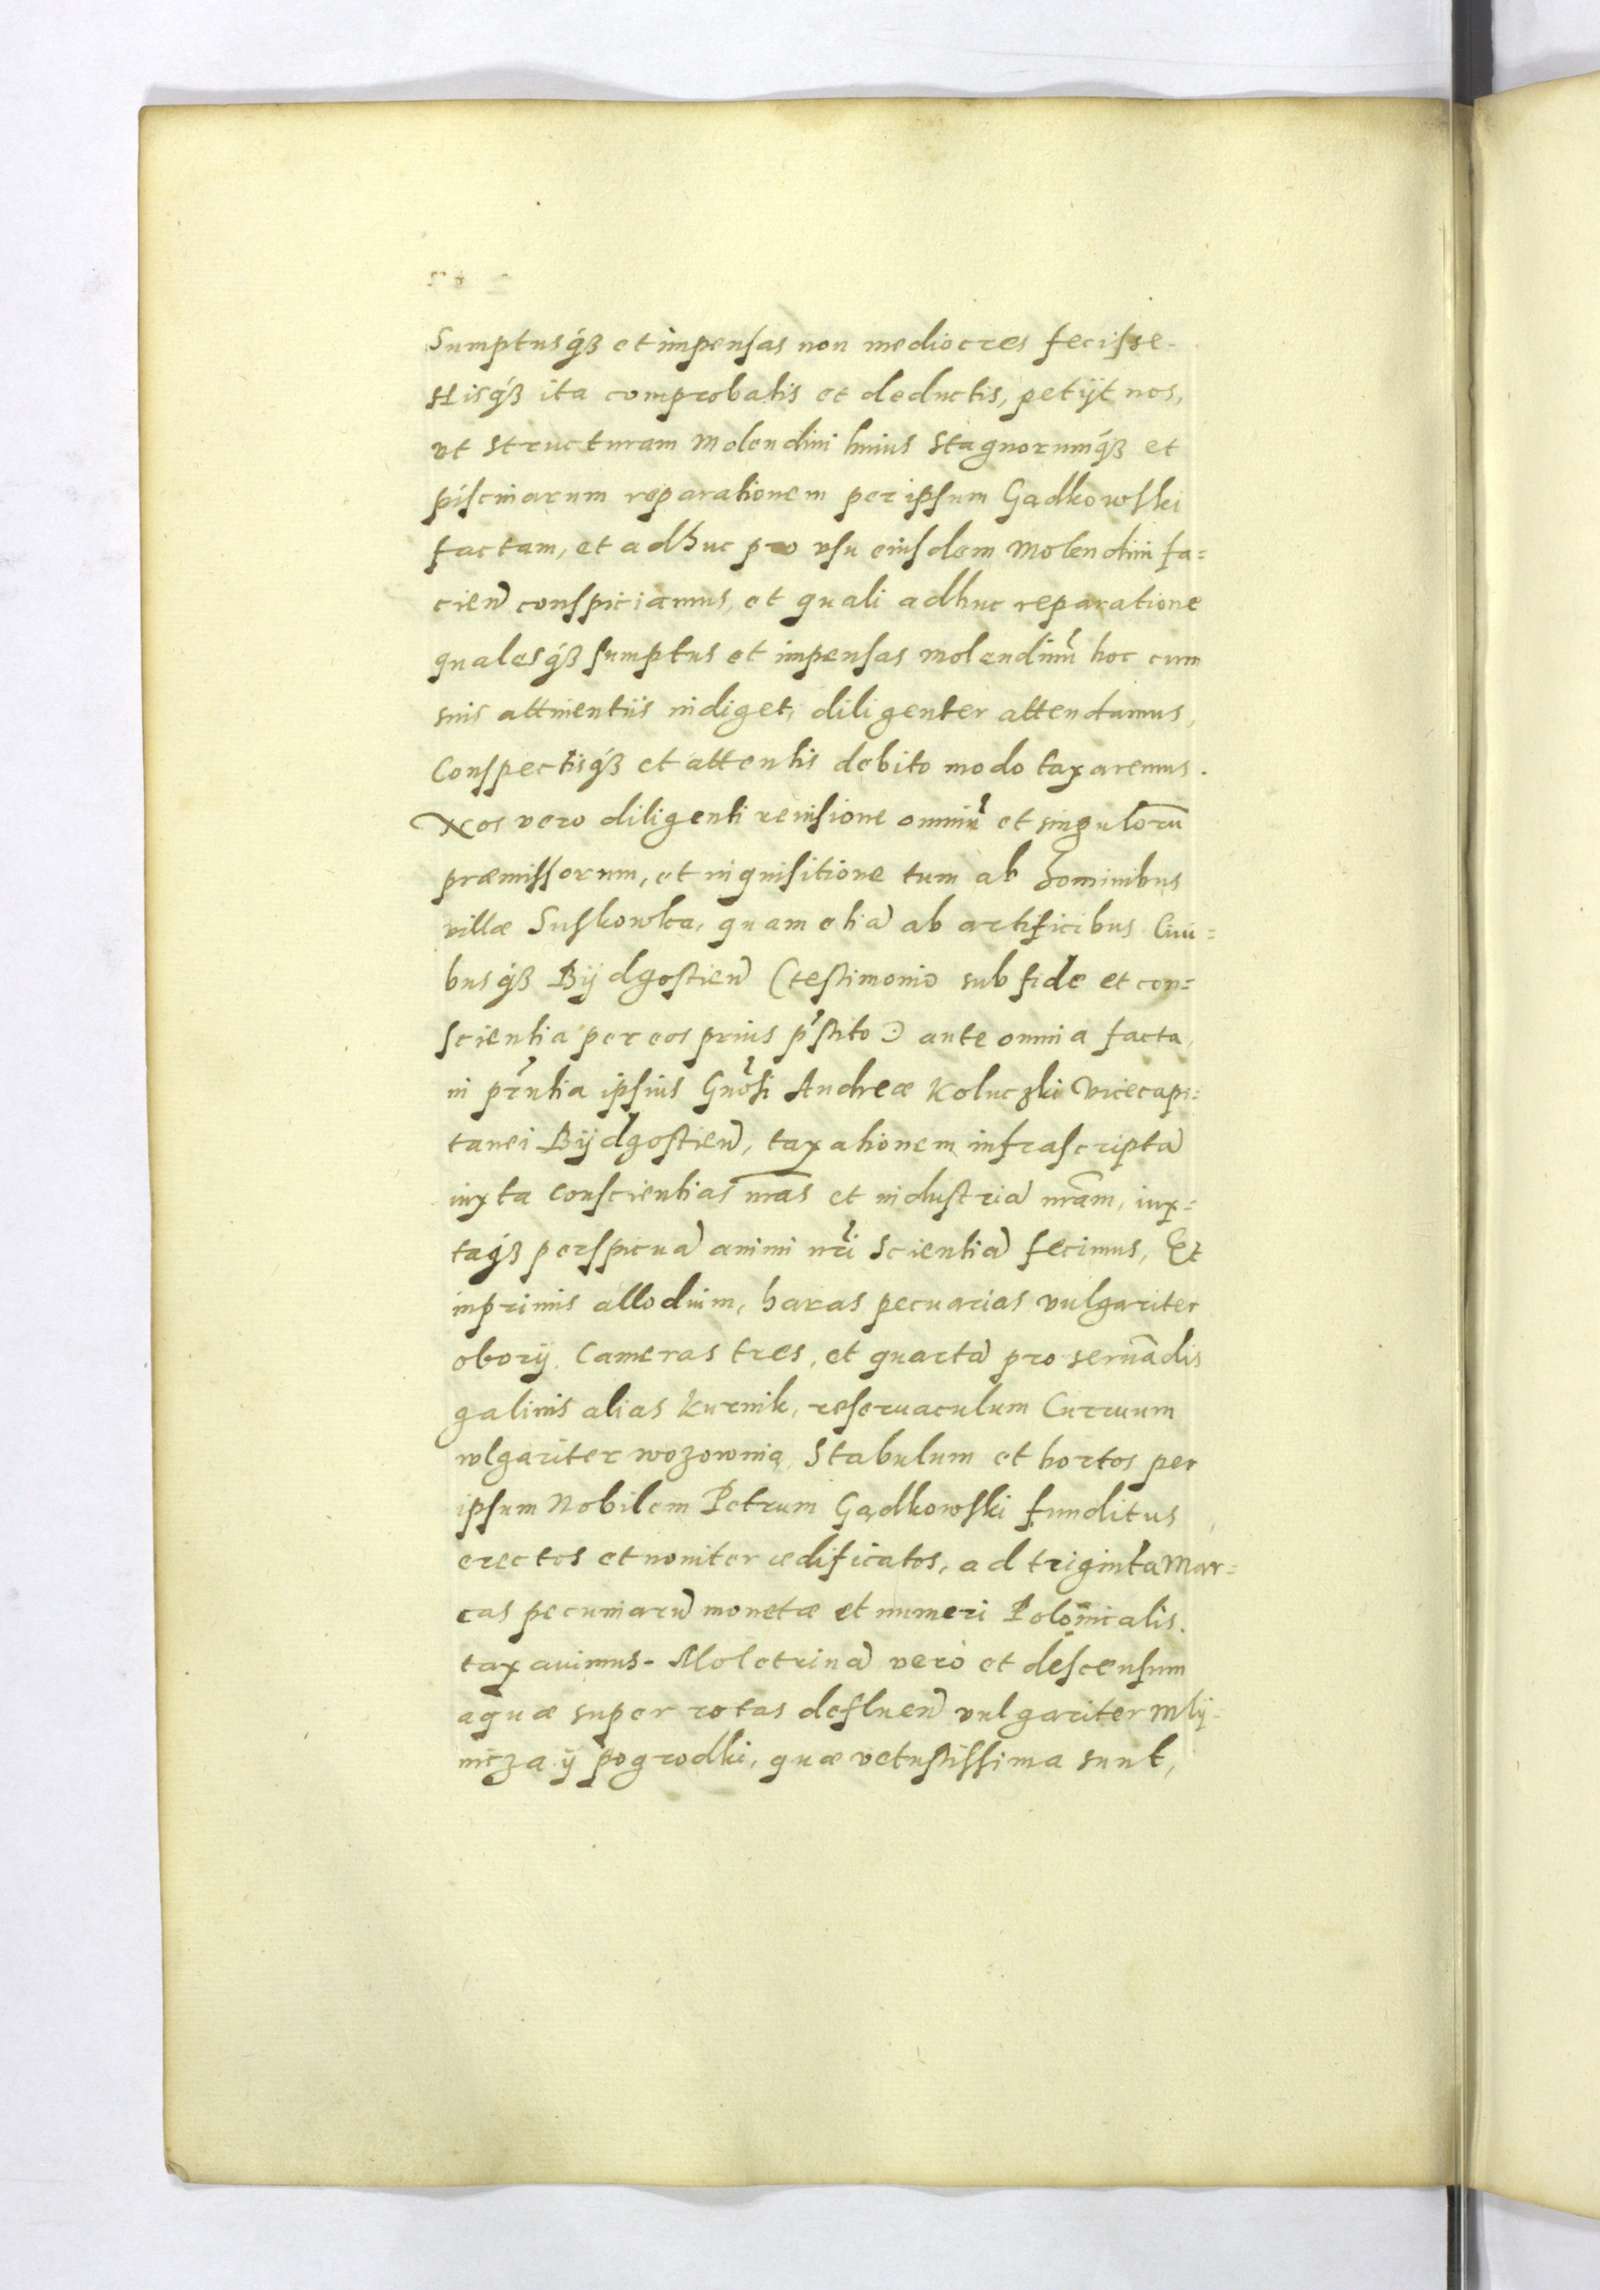 Sumptusq́ꝫ et impensas non mediocres fecisse.
Hisq́ꝫ ita comprobatis et deductis, petijt nos,
vt structuram Molendini huius Stagnorumq́ꝫ et
piscinarum reparationem per ipsum Gądkowski
factam, et adhuc pro vsu eiusdem Molendini fa=
cień conspiciamus, et quali adhuc reparatione
qualesq́ꝫ sumptus et impensas molendinū hoc cum
suis attinentiis indiget, diligenter attendamus,
Conspectisq́ꝫ et attentis debito modo taxaremus.
Nos vero diligenti reuisione omniū et singulorū
præmissorum, et inquisitione tum ab hominibus
villæ Suskowka, quam etiā ab artificibus Ciui=
busq́ꝫ Bijdgostień (testimonio sub fide et con=
scientia per eos prius p̃stito) ante omnia facta,
in pr̃ntia ipsius Gnõsi Andreæ Koluczki Vicecapi=
tanei Bijdgostień, taxationem infrascriptā
iuxta conscientias nr̃as et industriā nr̃am, iux=
taq́ꝫ perspicuā animi nr̃i scientiā fecimus, Et
inprimis allodium, haras pecuarias vulgariter
oborij, Cameras tres, et quartā pro seruādis
galinis alias Kurnik, reseruaculum Curruum
vlgariter wozownią, Stabulum et hortos per
ipsum Nobilem Petrum Gądkowski funditus
erectos et nouiter ædificatos, ad triginta Mar=
cas pecuniarū monetæ et numeri Polonicalis
taxauimus. Moletrinā vero et descensum
aquæ super rotas defluen̄ vulgariter Mlij=
nicza ij pogrodki, quæ vetustissima sunt,